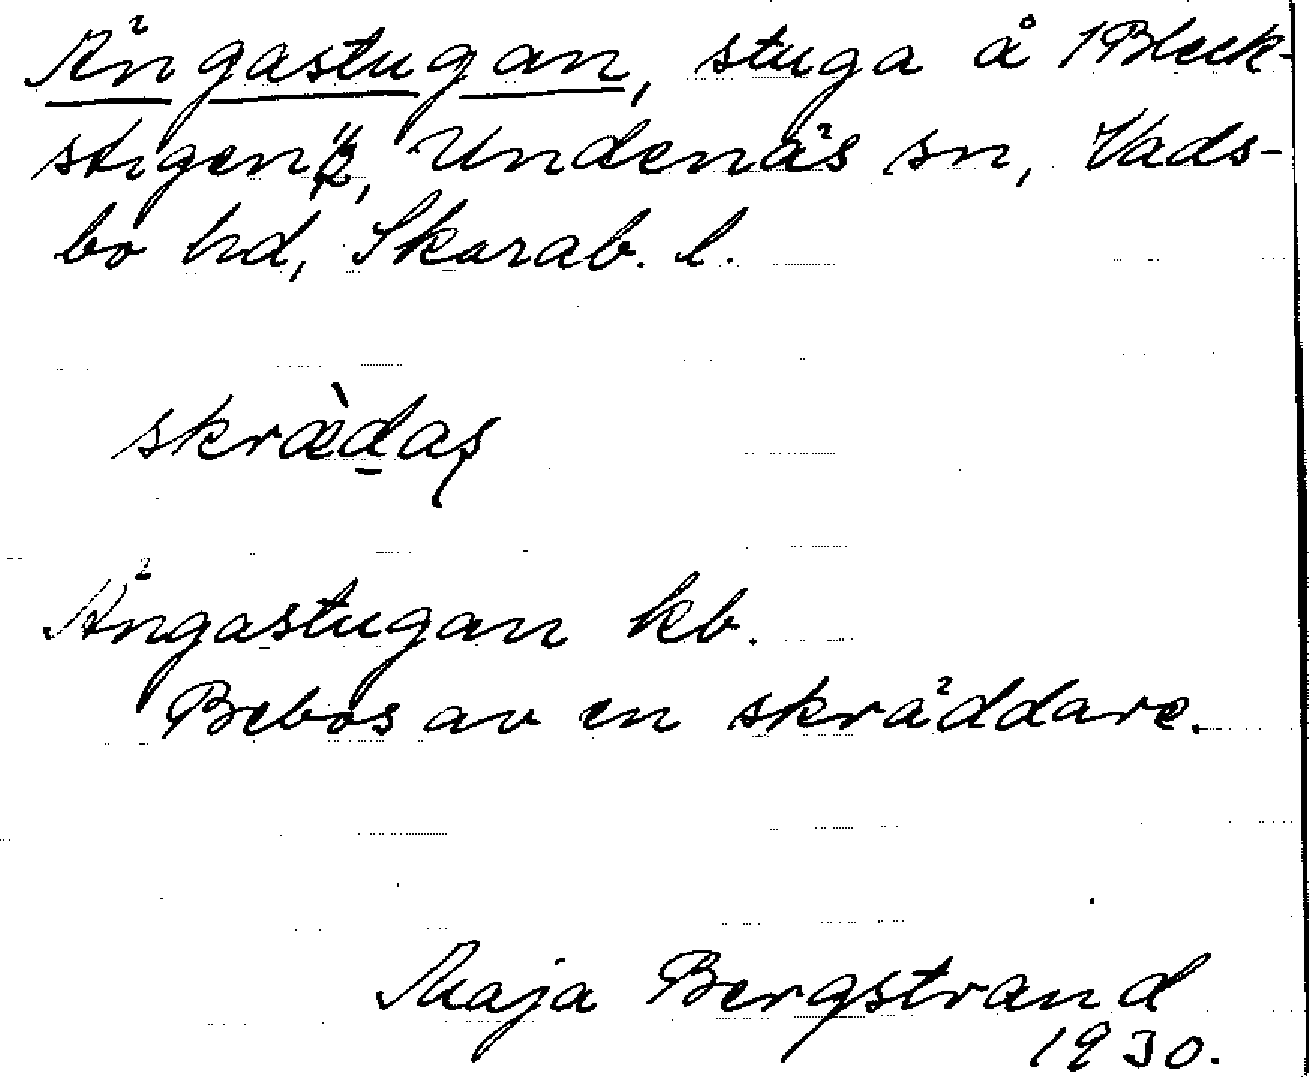 Ängastugan, stuga å 1 Bleck-
stigen 1/4, Undenäs sn, Vads-
bo hd, Skarab. l.
skræ̀d̲aş
Ängastugan kb.
Bebos av en skräddare.
Maja Bergstrand
1930.